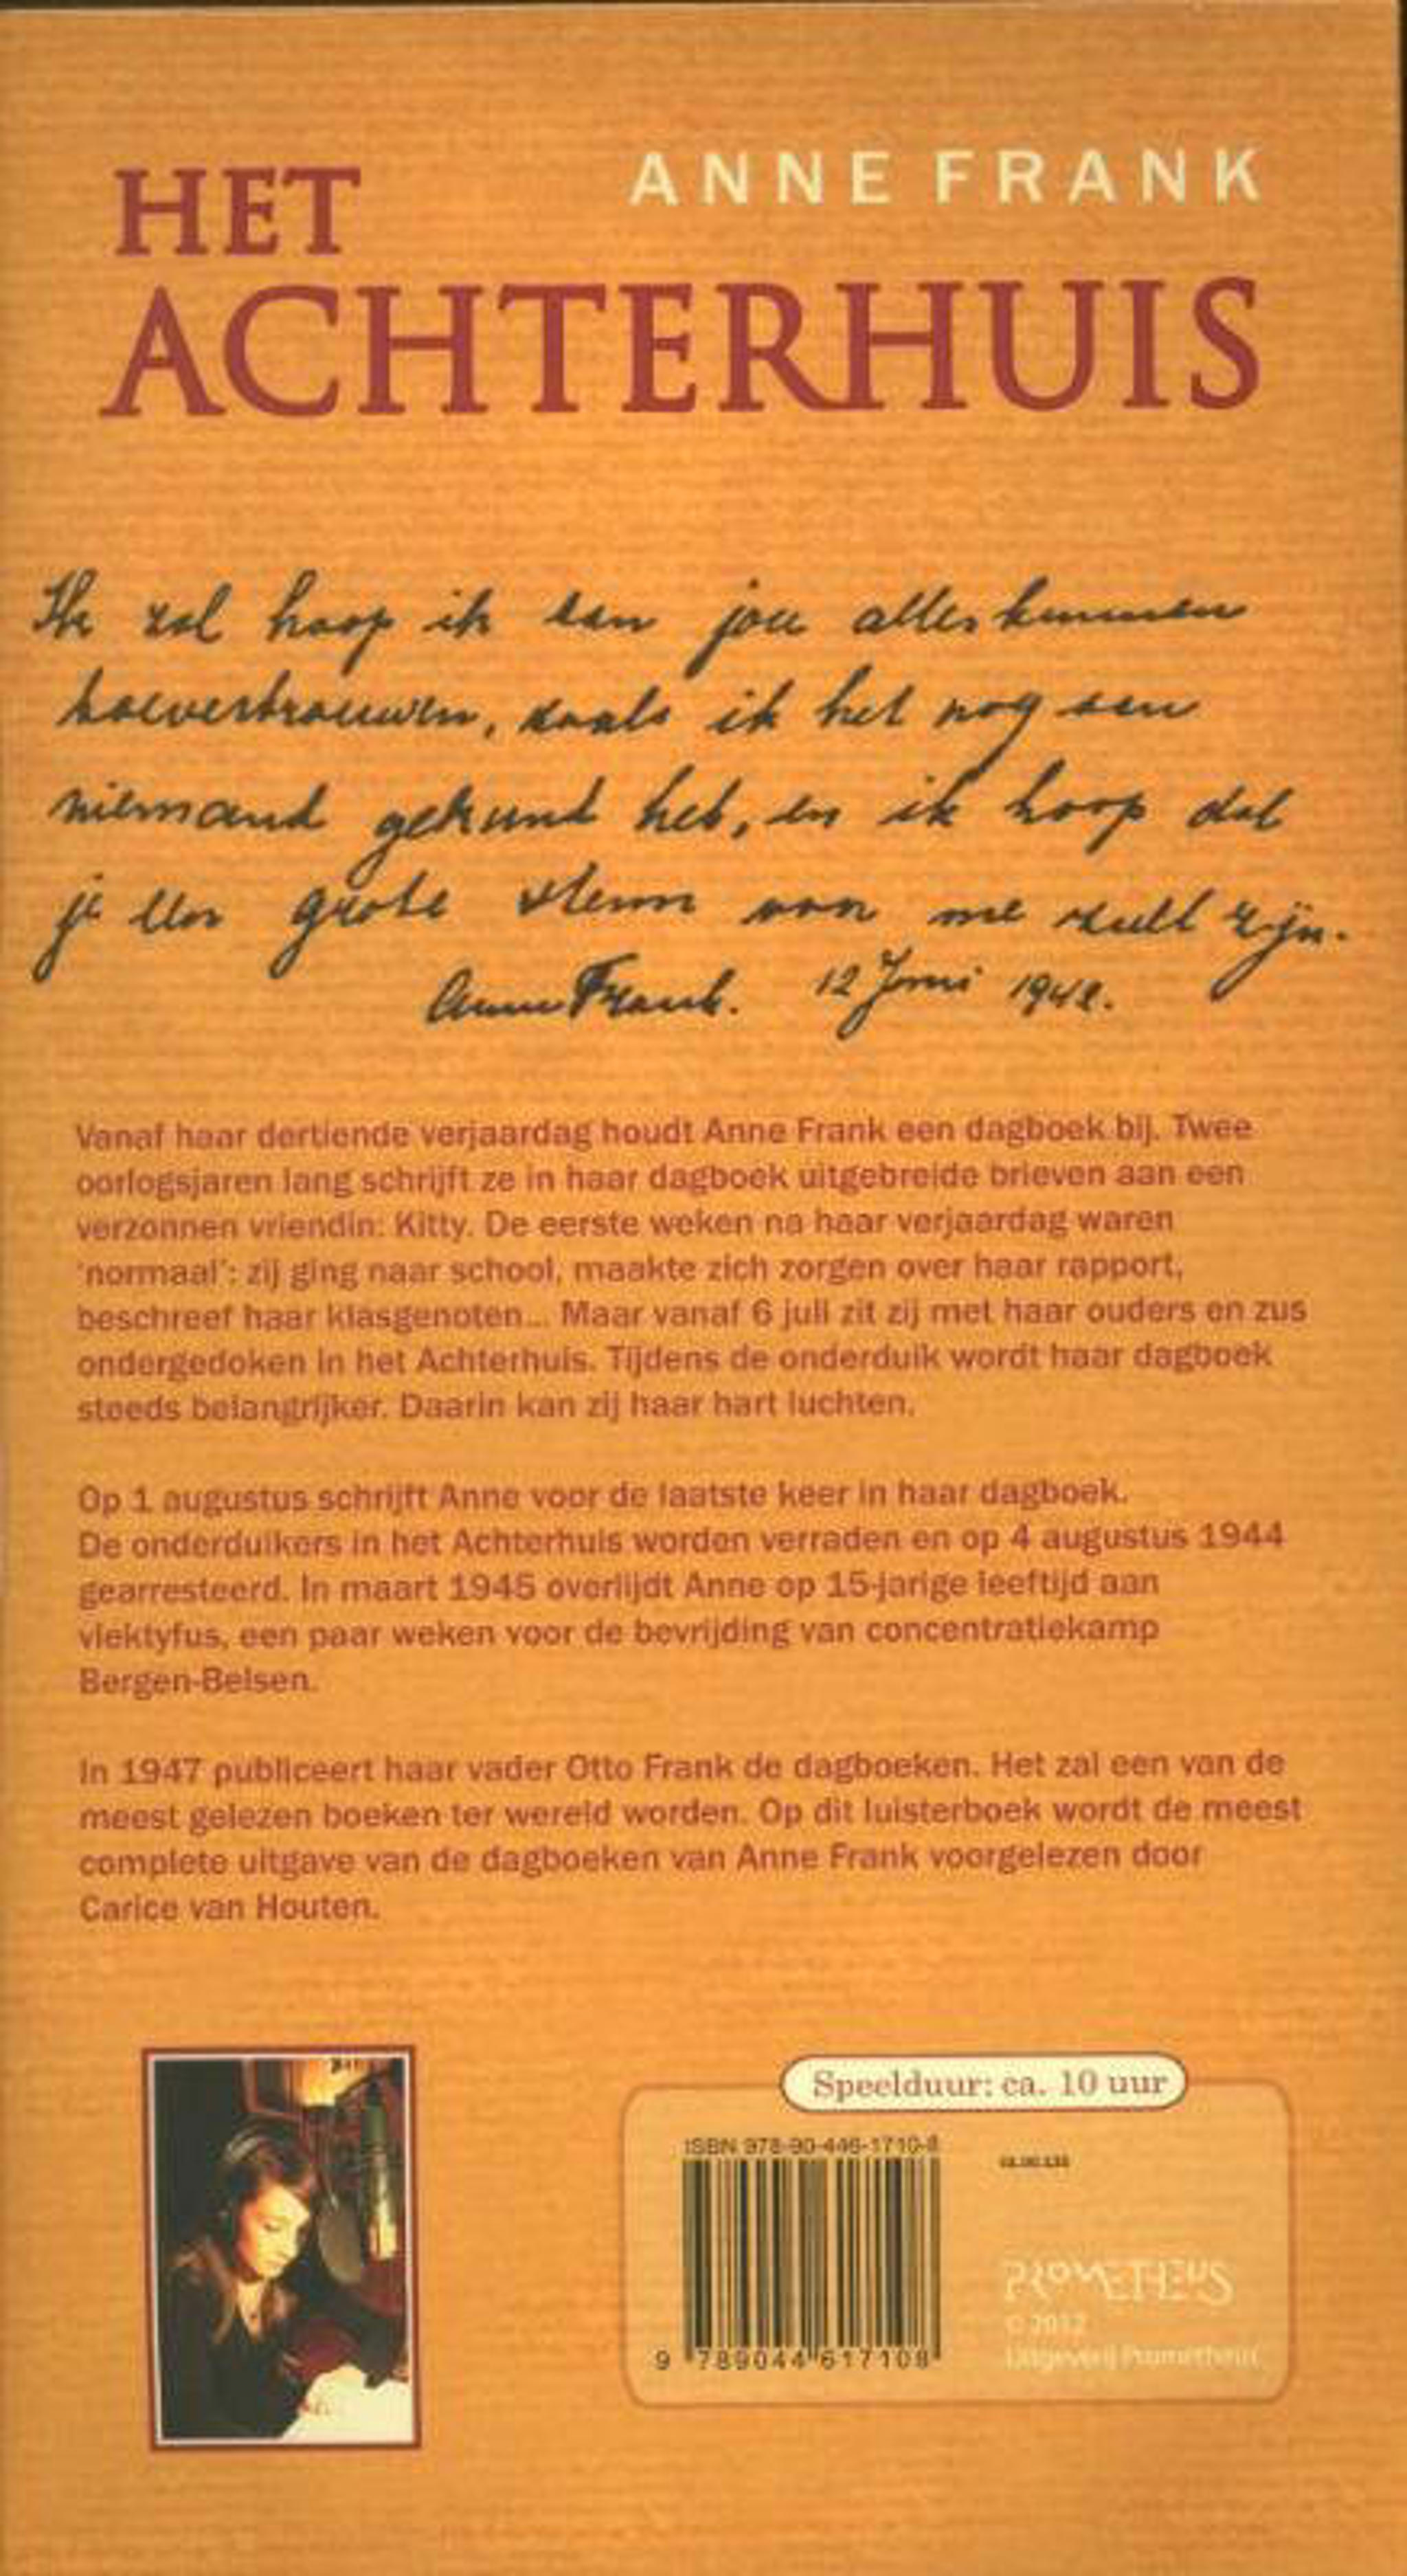 ANNE FRANK
HET
ACHTERHUIS
Ik zal hoop ik aan jou alles kunnen
toevertrouwen, zoals ik het nog aan
niemand gekund heb, en ik hoop dat
je een grote steun van me zult zijn.
Anne Frank. 12 Juni 1942.
Vanaf haar dertiende verjaardag houdt Anne Frank een dagboek bij. Twee
oorlogsjaren lang schrijft ze in haar dagboek uitgebreide brieven aan een
verzonnen vriendin: Kitty. De eerste weken na haar verjaardag waren
'normaal': zij ging naar school, maakte zich zorgen over haar rapport,
beschreef haar klasgenoten... Maar vanaf 6 juli zit zij met haar ouders en zus
ondergedoken in het Achterhuis. Tijdens de onderduik wordt haar dagboek
steeds belangrijker. Daarin kan zij haar hart luchten.
Op 1 augustus schrijft Anne voor de laatste keer in haar dagboek.
De onderduikers in het Achterhuis worden verraden en op 4 augustus 1944
gearresteerd. In maart 1945 overlijdt Anne op 15-jarige leeftijd aan
vlektyfus, een paar weken voor de bevrijding van concentratiekamp
Bergen-Belsen.
In 1947 publiceert haar vader Otto Frank de dagboeken. Het zal een van de
meest gelezen boeken ter wereld worden. Op dit luisterboek wordt de meest
complete uitgave van de dagboeken van Anne Frank voorgelezen door
Carice van Houten.
Speelduur: ca. 10 uur
ISBN 978-90-446-1710-8
9 789044 617108
PROMETHEUS
© 2012
Uitgeverij Prometheus